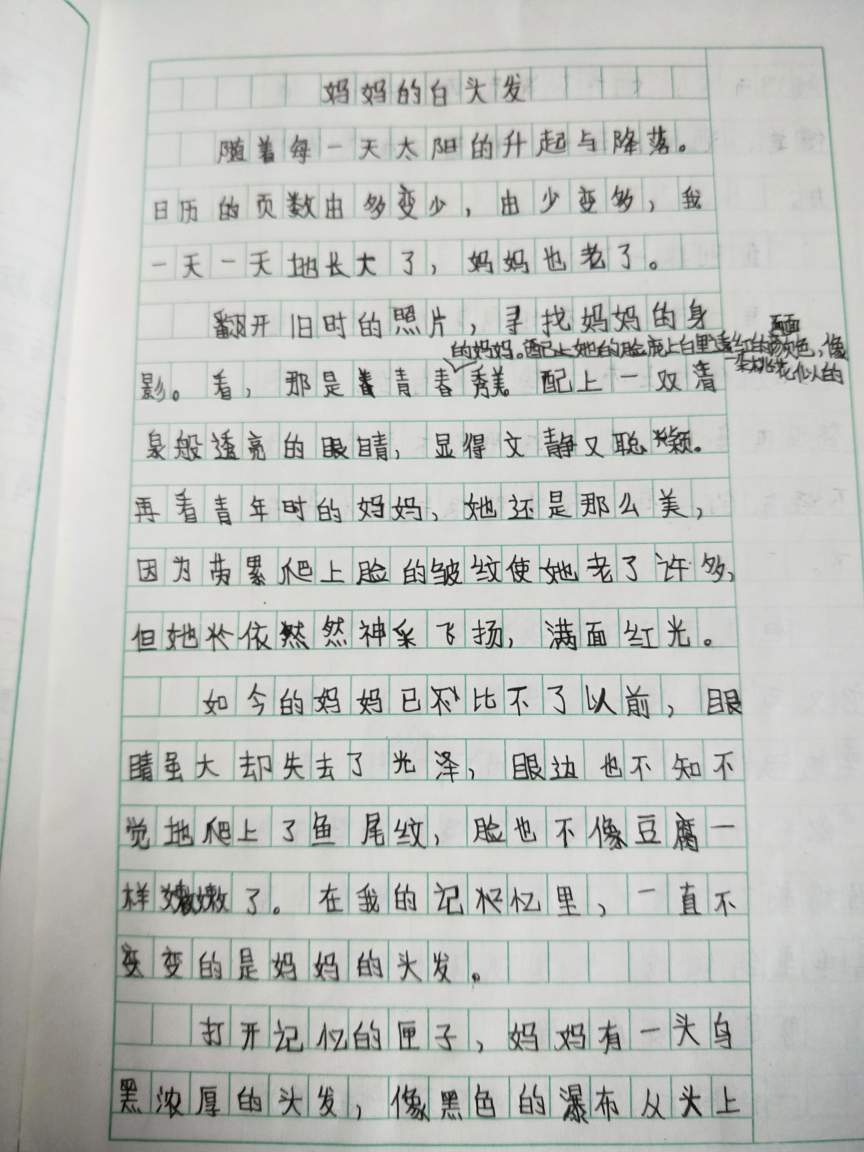 妈妈的白头发
随着每一天太阳的升起与降落。
日历的页数由多变少，由少变多，我
一天一天地长大了，妈妈也老了。
翻开旧时的照片，寻找妈妈的身
的妈妈。配上她的脸庞上白里透红的颜色，像
一朵桃花似人的
影。看，那是青春秀美。配上一双清
泉般透亮的眼睛，显得文静又聪颖。
再看青年时的妈妈，她还是那么美，
因为劳累爬上脸的皱纹使她老了许多，
但她依然神采飞扬，满面红光。
如今的妈妈已比不了以前，眼
睛虽大却失去了光泽，眼边也不知不
觉地爬上了鱼尾纹，脸也不像豆腐一
样嫩了。在我的记忆里，一直不
变的是妈妈的头发。
打开记忆的匣子，妈妈有一头乌
黑浓厚的头发，像黑色的瀑布从头上